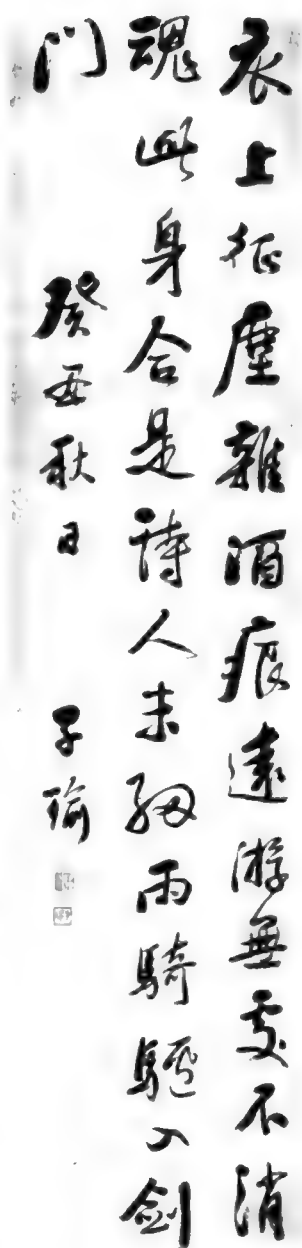 衣上征塵雜酒痕遠游無處不消
魂此身合是詩人未細雨騎驢入劍
門
癸丑秋日
子瑜